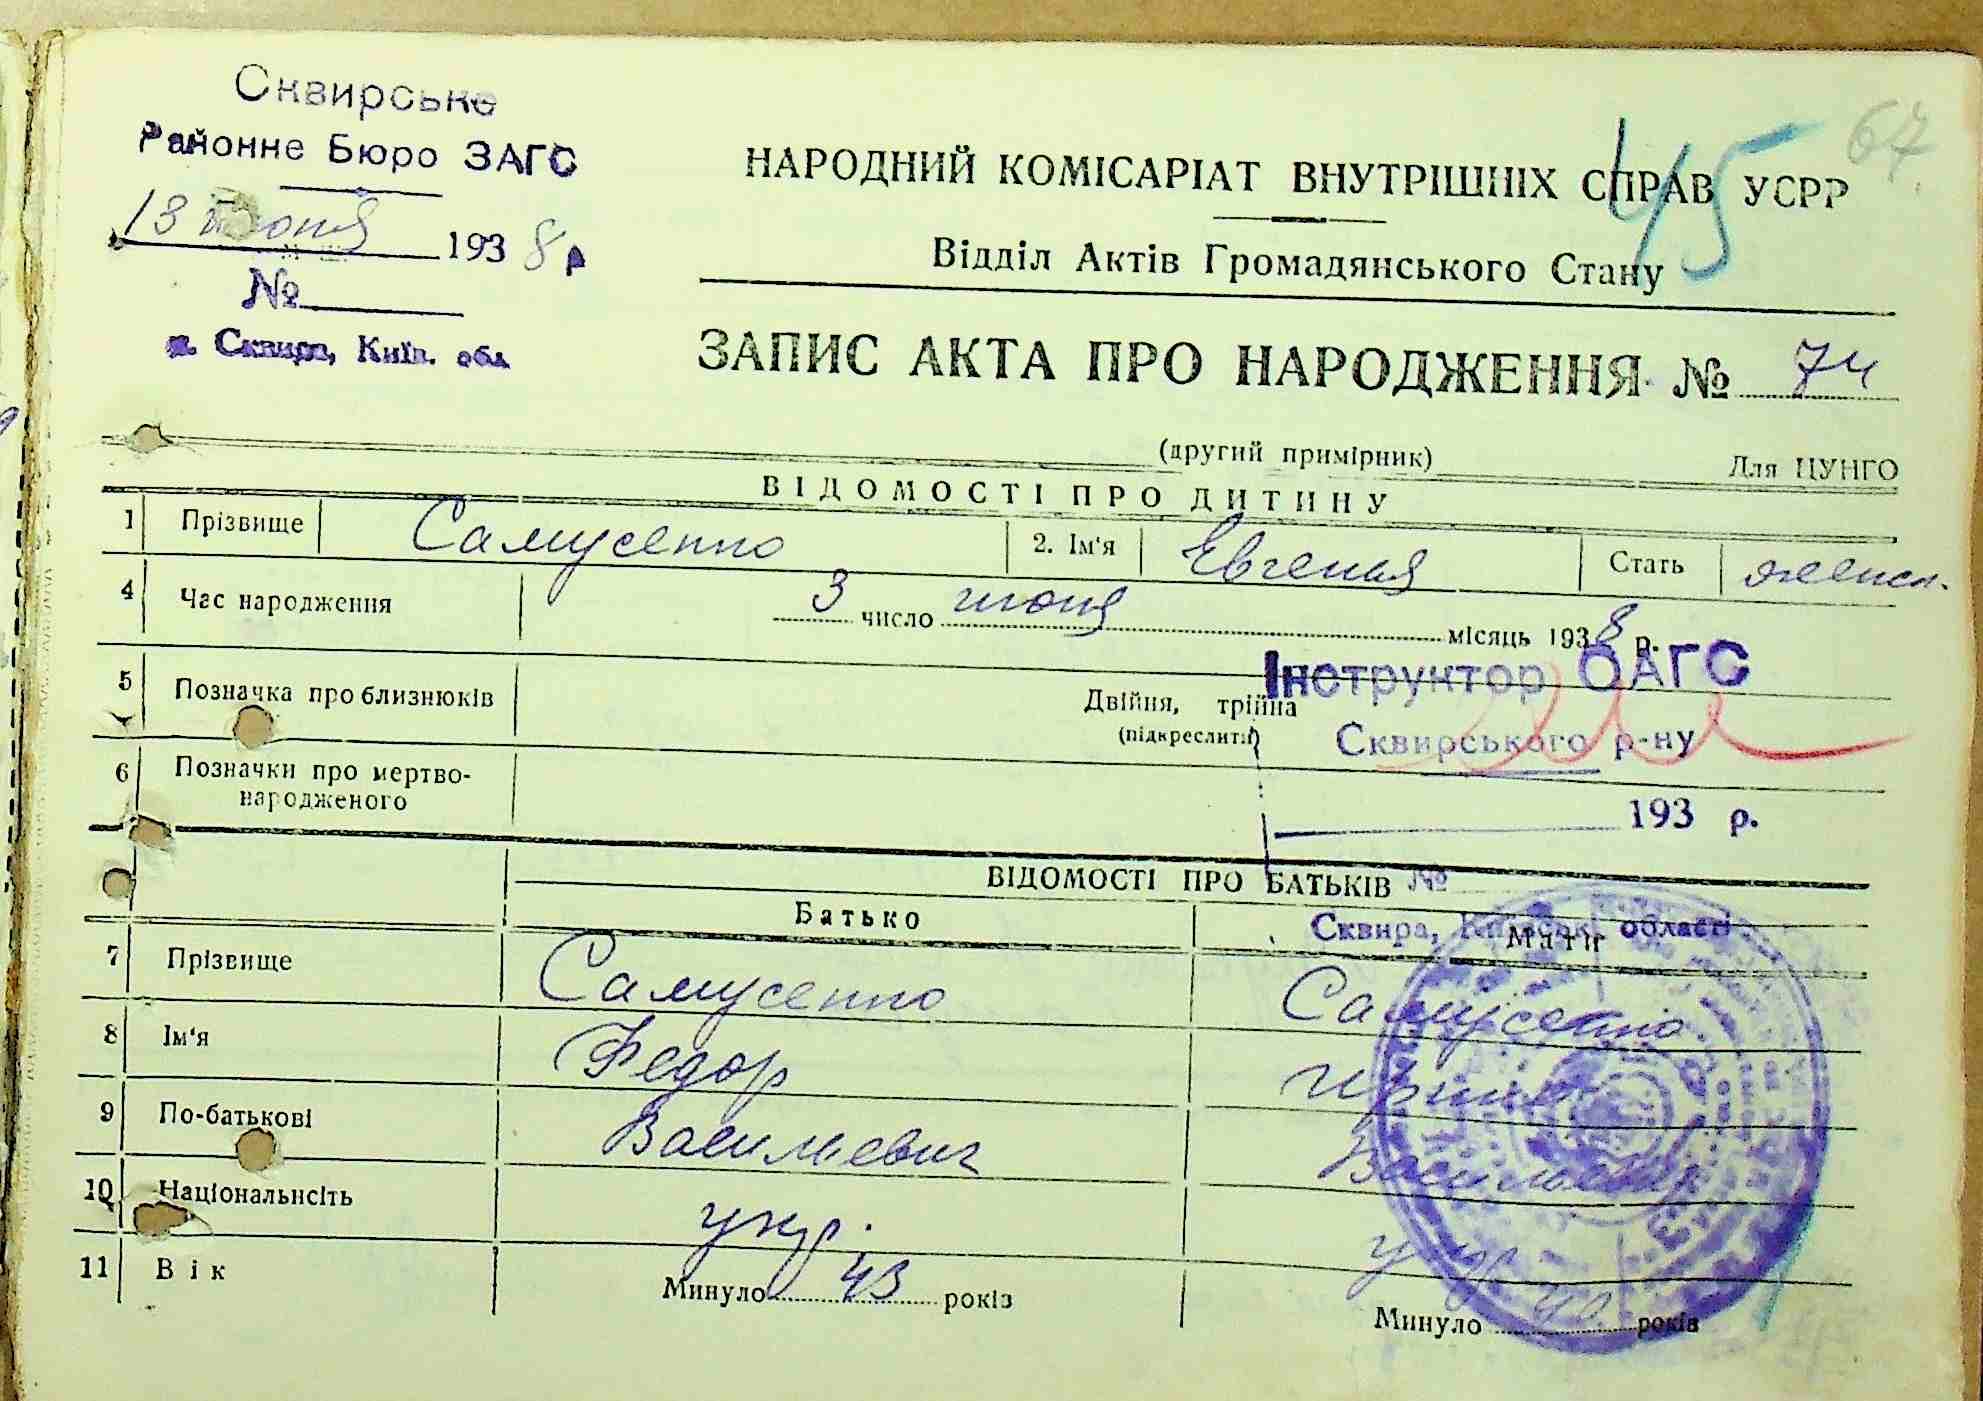 Сквирське
Районне Бюро ЗАГС
13 июня 1938 р
№
м. Сквира, Київ. обл
45
67
НАРОДНИЙ КОМІСАРІАТ ВНУТРІШНІХ СПРАВ УСРР
Відділ Актів Громадянського Стану
ЗАПИС АКТА ПРО НАРОДЖЕННЯ № 74
(другий примірник) Для ЦУНГО
ВІДОМОСТІ ПРО ДИТИНУ
1 Прізвище Самусенко 2. Ім'я Евгения Стать женск.
4 Час народження 3 число июня місяць 1938 р.
Інструктор ОАГС
5 Позначка про близнюків Двійня, трійна
(підкреслити)
Сквирського р-ну
6 Позначки про мертво-
народженого
193 р.
ВІДОМОСТІ ПРО БАТЬКІВ №
Батько Мати
Сквира, Київськ. області
7 Прізвище Самусенко Самусенко
8 Ім'я Федор
9 По-батькові Васильевич
10 Національність укр. укр
11 Вік Минуло 43 років Минуло 40 років